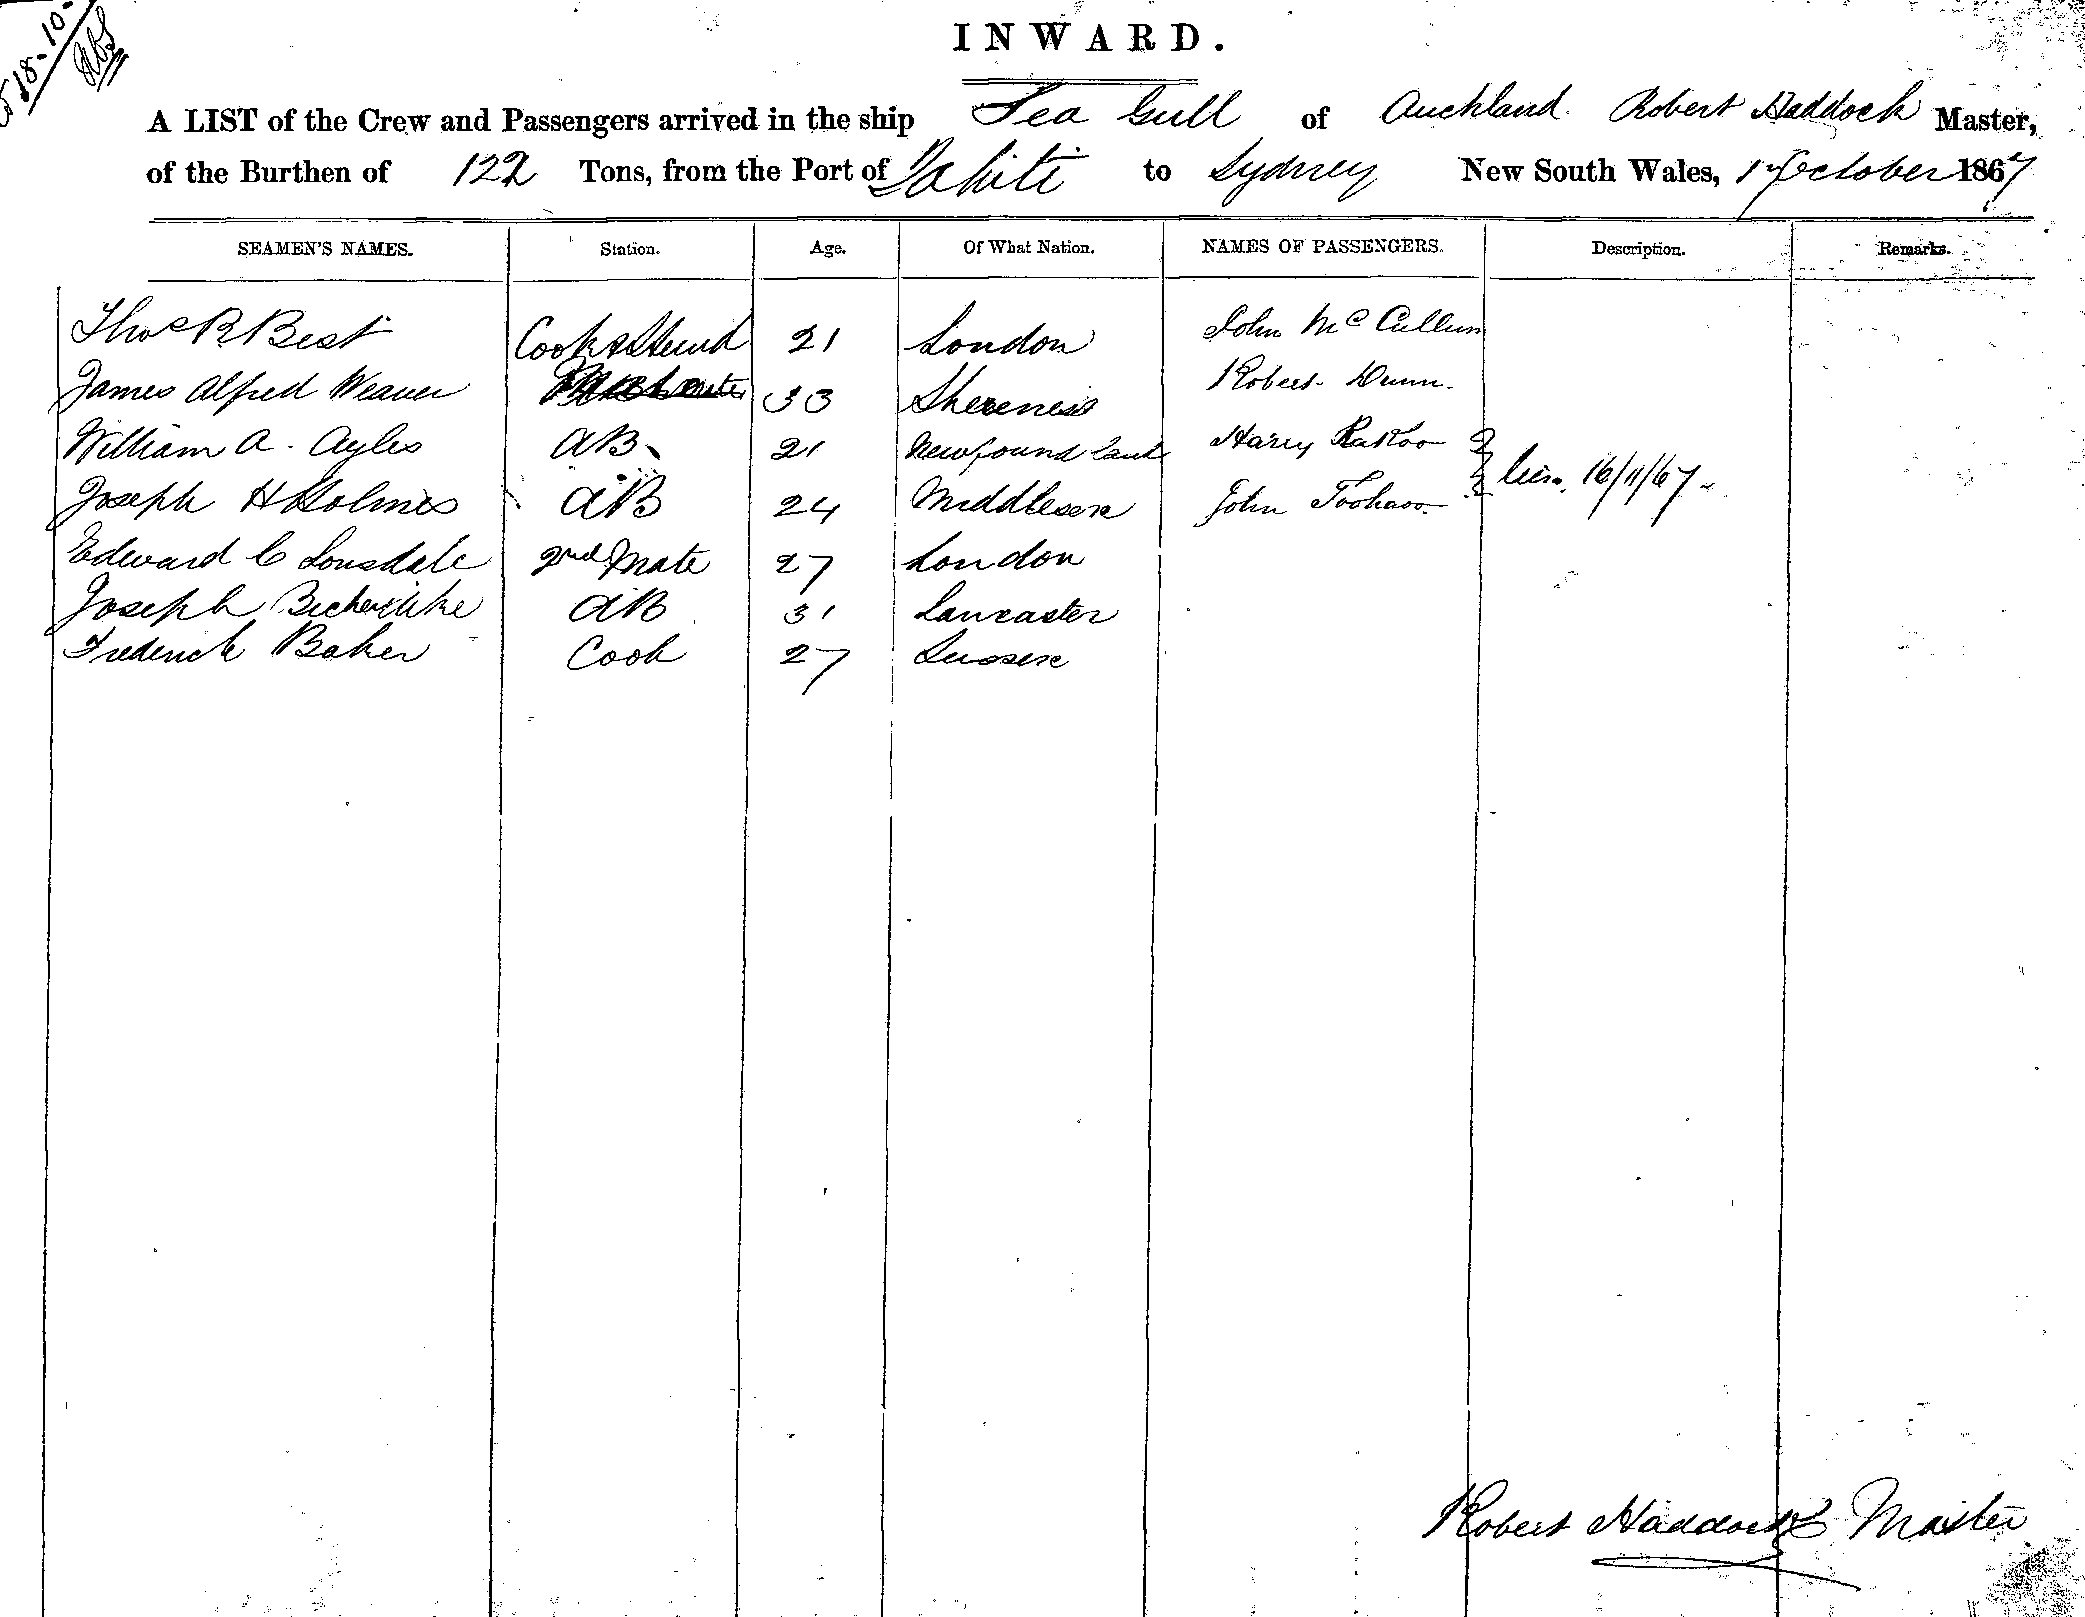 18-10-
INWARD.
A LIST of the Crew and Passengers arrived in the ship Sea Gull of Auckland. Robert Haddock Master,
of the Burthen of 122 Tons, from the Port of Tahiti to Sydney New South Wales, 17 October 1867
SEAMEN'S NAMES. Station. Age. Of What Nation. NAMES OF PASSENGERS. Description. Remarks.
Thos R Best Cook & Steward 21 London John McCullum
James Alfred Weaver mate 33 Sheerness Robert Dunn.
William A. Ayles AB 21 Newfoundland Harry
Joseph H Holmes AB 24 Middlesex John 16/11/67
Edward C Lonsdale 2nd Mate 27 London
Joseph AB 31 Lancaster
Frederick Baker Cook 27 Sussex
Robert Haddock Master